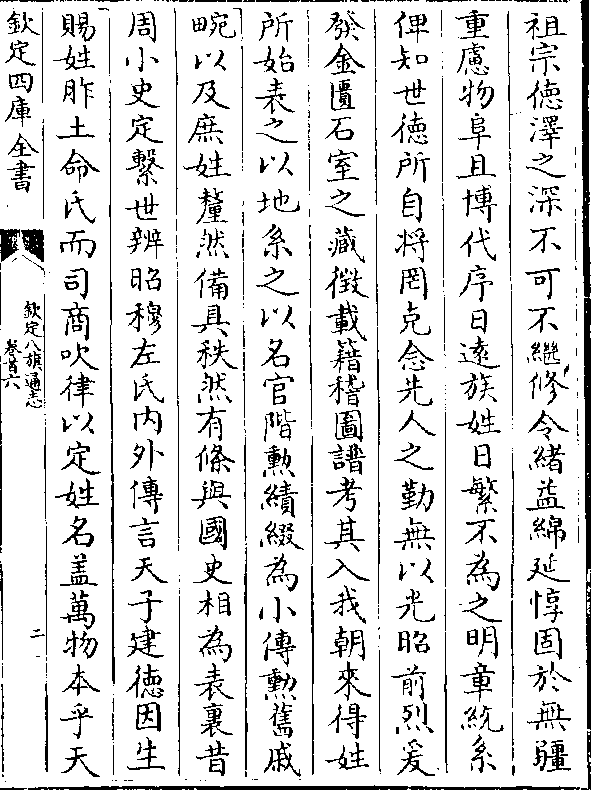 祖宗德澤之深不可不繼修令緒益綿延惇固於無疆
重慮物阜且博代序日逺族姓日繁不為之明章統系
俾知世德所自将罔克念先人之勤無以光昭前烈爰
發金匱石室之藏徴載籍稽圖譜考其入我朝來得姓
所始表之以地系之以名官階勲績綴為小傳勲舊戚
畹以及庶姓釐然備具秩然有條與國史相為表裏昔
周小史定繫世辨昭穆左氏内外傳言天子建德因生
賜姓胙土命氏而司商吹律以定姓名盖萬物本乎天
欽定四庫全書
欽定八旗通志
卷首六
二